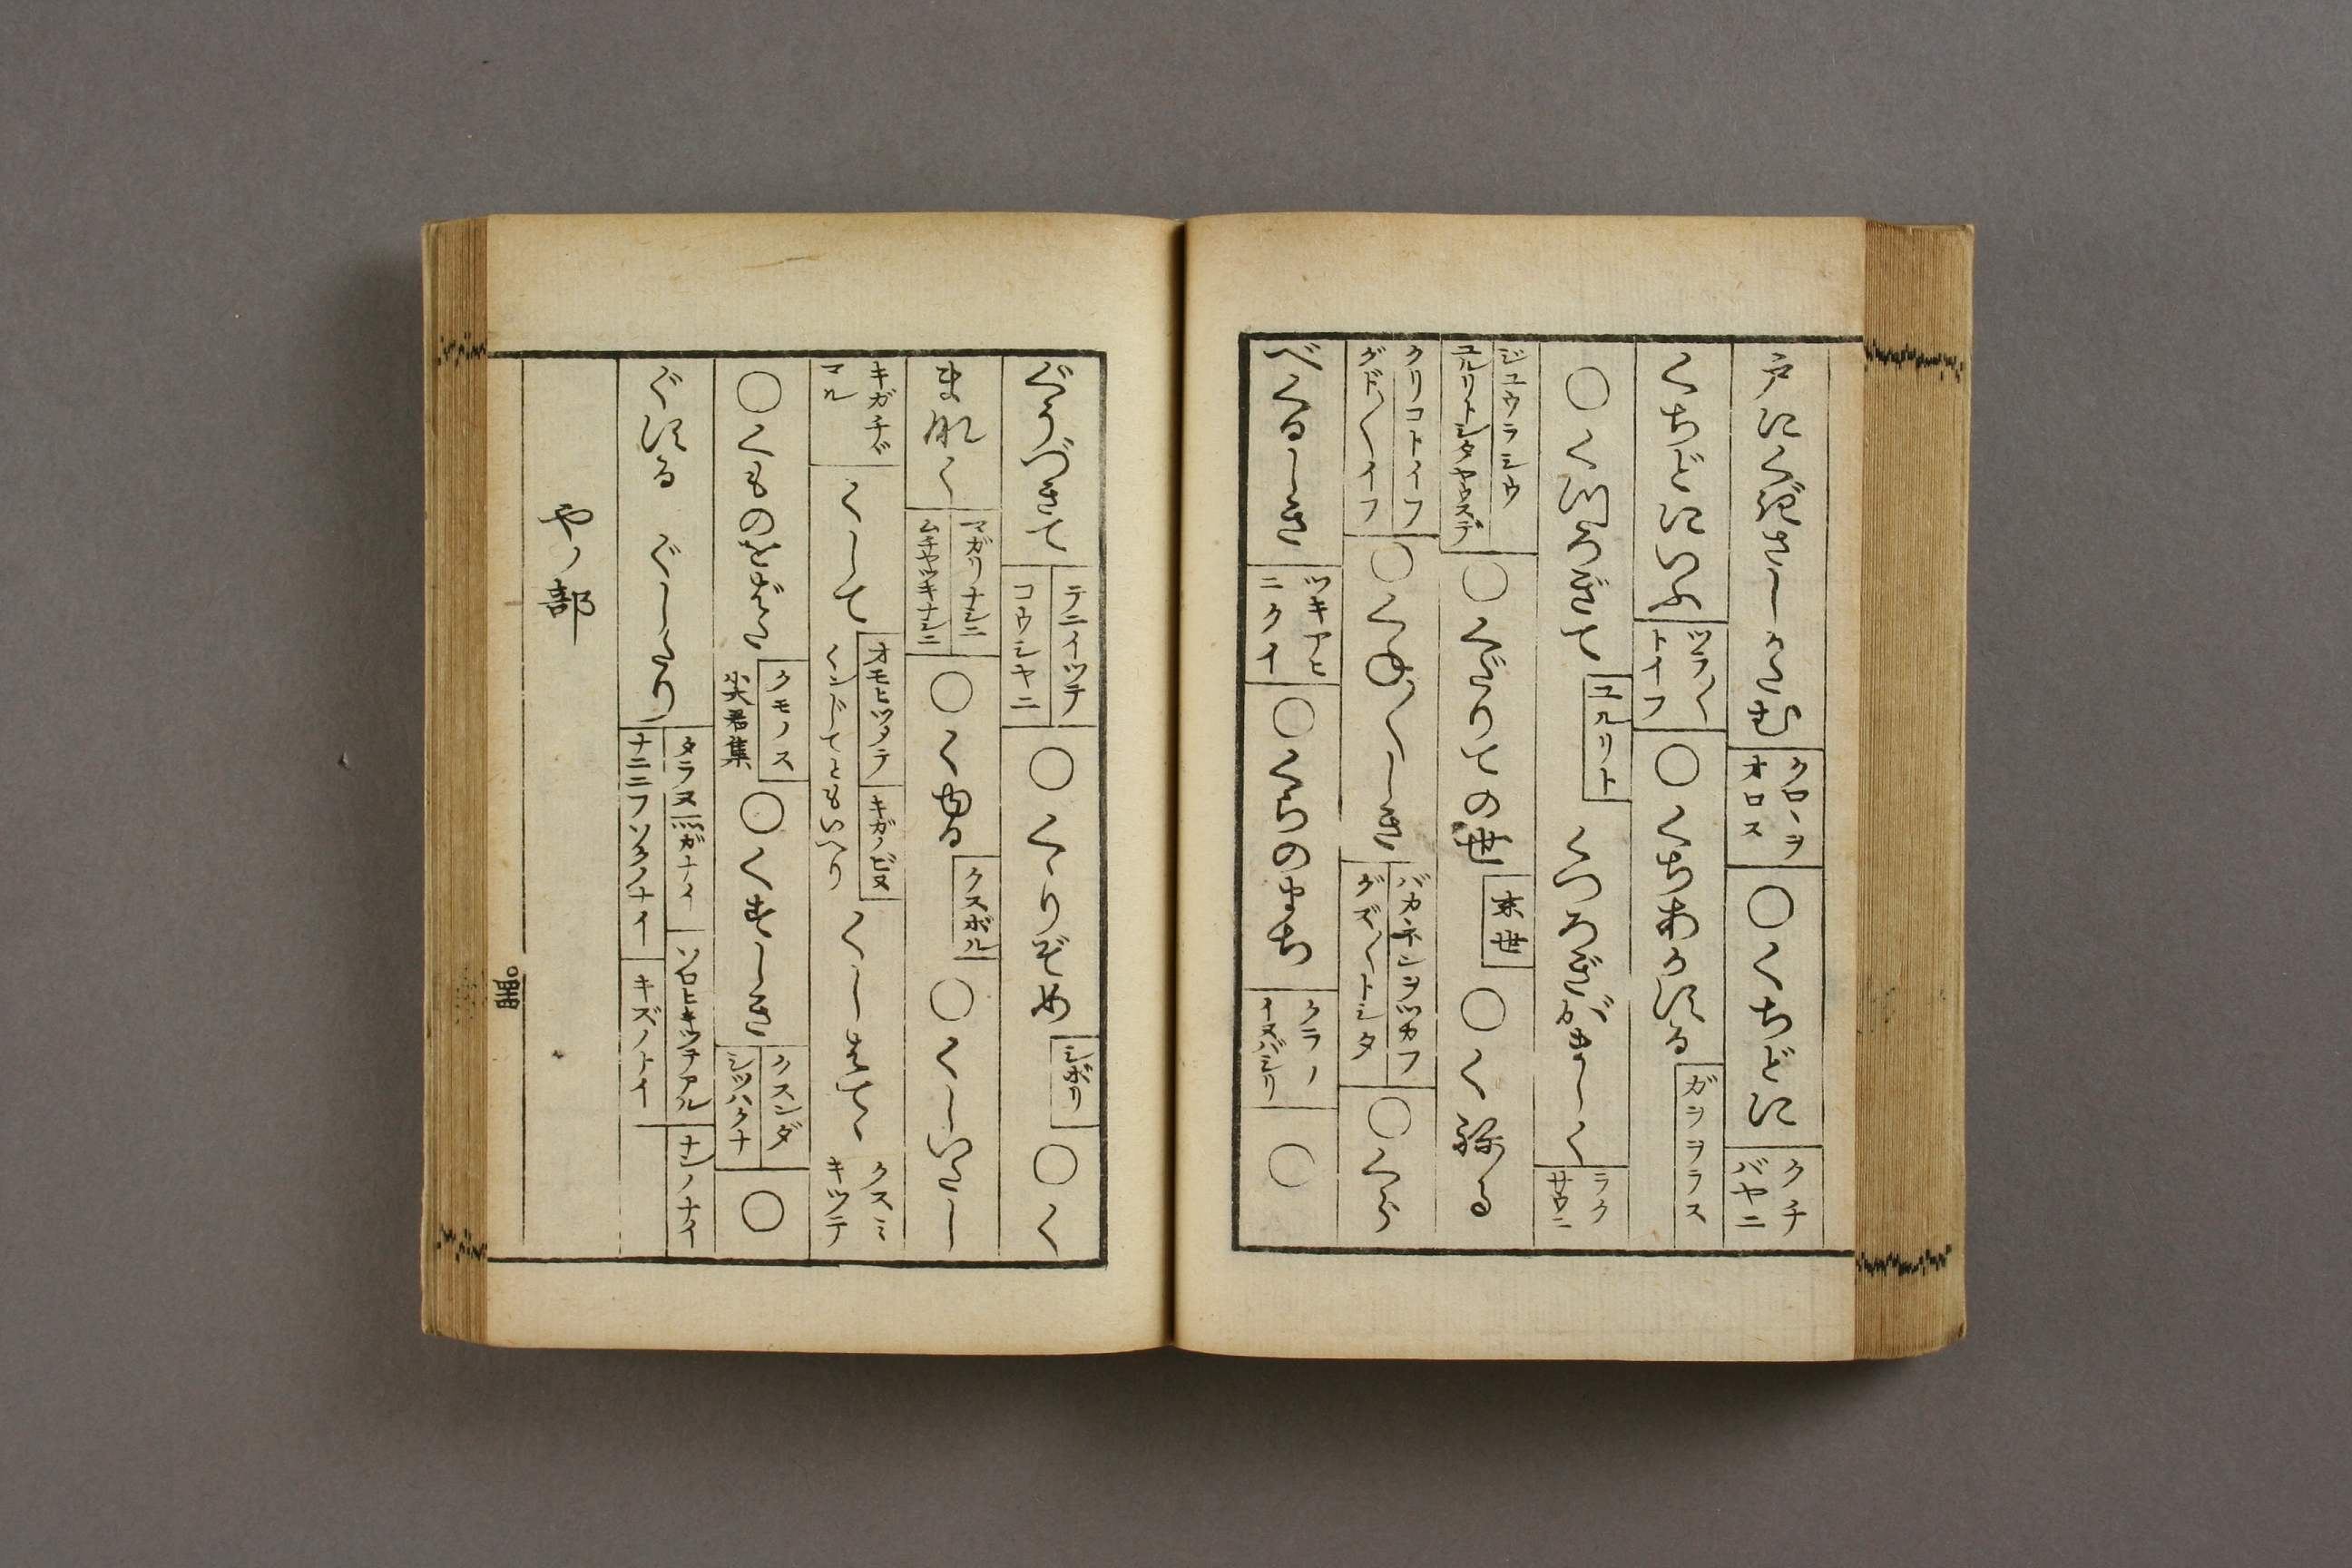 戸にくぎさしかため クロヽヲオロス ○くちどに クチバヤニ
くちどにいふ ツラ〱トイフ ○くちあかする ガヲヲラス
○くつろぎて ユルリト くつろぎがましく ラクサウニ
ジユウラシウ ユルリトシタヤウスデ ○くだりての世 末世 ○くねる
クリコトイフ グド〱イフ ○くね〱しき バカネンヲツカフ グズ〱トシタ ○くら
べくるしき ツキアヒニクイ ○くらのまち クラノイヌバシリ ○
ぐうづきて テニイツテ コウシヤニ ○くゝりぞめ シボリ ○く
まなく マガリナシニ ムチヤツキナシニ ○くゆる クスボル ○くしいたし
キガチヾマル くして オモヒツメテ キガノビヌ くんじてともいへり くしはてゝ クスミキツテ
○くものすがき クモノス 小大君集 ○くすしき クスンダ シツハクナ ○
ぐする ぐしたり タラヌ㕝ガナイ ナニニフソクノナイ ソロヒキツテアル キズノトイ ナンノナイ
やノ部